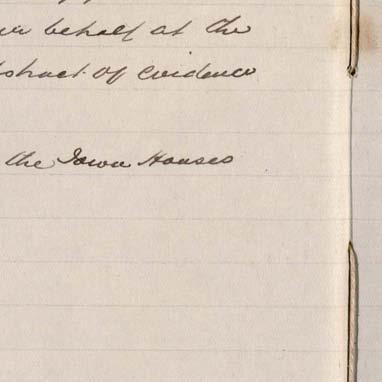 behalf at the
of evidence
the Town Houses